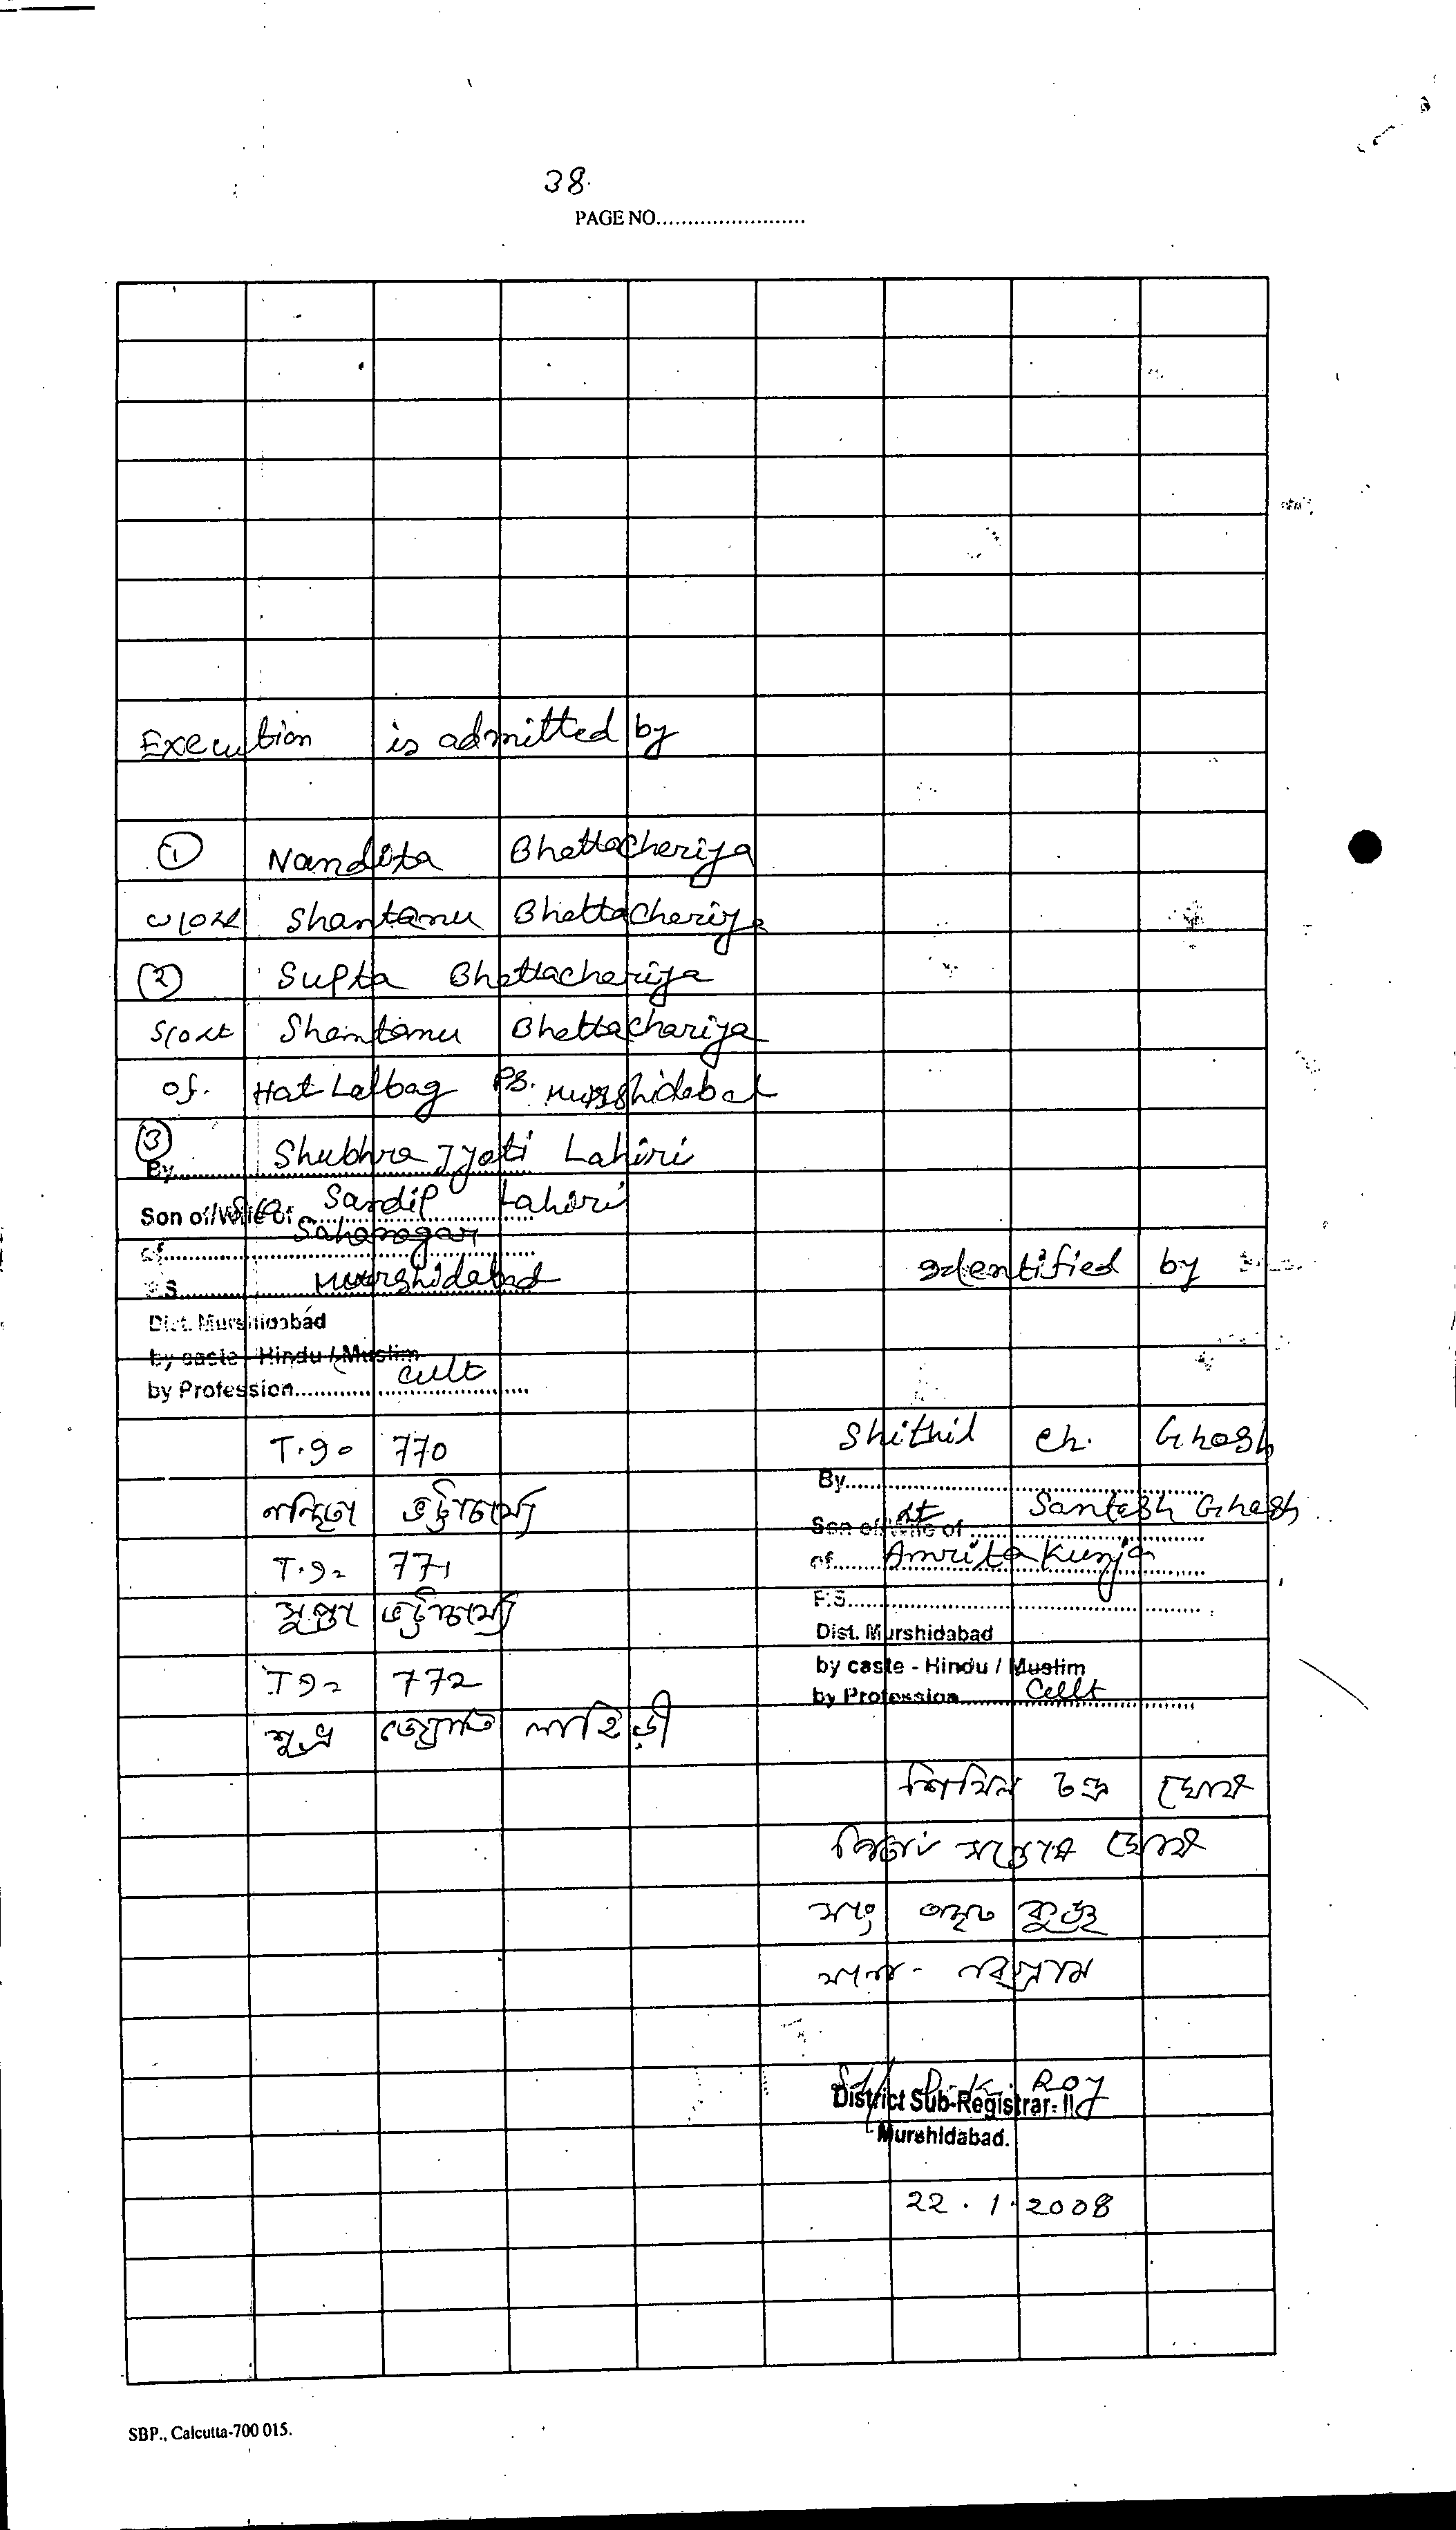 38.
PAGE NO.........................
Execution is admitted by
① Nandita Bhattacheriya
w/o Lt Shantanu Bhattacheriya
② Supta Bhattacheriya
S/o Lt Shantanu Bhattachariya
of. Hat Lalbag PS. Murshidabad
③ Shubhra Jyoti Lahiri
By..........
Son of/Wife of S/o Sandip Lahiri
of.......... Sahanagar
P.S.......... Murshidabad
Dist. Murshidabad
by caste - Hindu / Muslim
by Profession.......... Cult
Identified by
Shithil Ch. Ghosh
By..........
Son of/Wife of Lt Santosh Ghosh
of.......... Amrita Kunja
P.S..........
Dist. Murshidabad
by caste - Hindu / Muslim
by Profession.......... Cult
770
নন্দিতা ভট্টাচার্য্য
771
সুপ্তা ভট্টাচার্য্য
772
শুভ্র জ্যোতি লাহিড়ী
শিথিল চন্দ্র ঘোষ
সন্তোষ ঘোষ
সাং অমৃত কুন্ডু
থানা - নবগ্রাম
Sd/ D. K. Roy
District Sub-Registrar-II
Murshidabad.
22.1.2008
SBP., Calcutta-700 015.